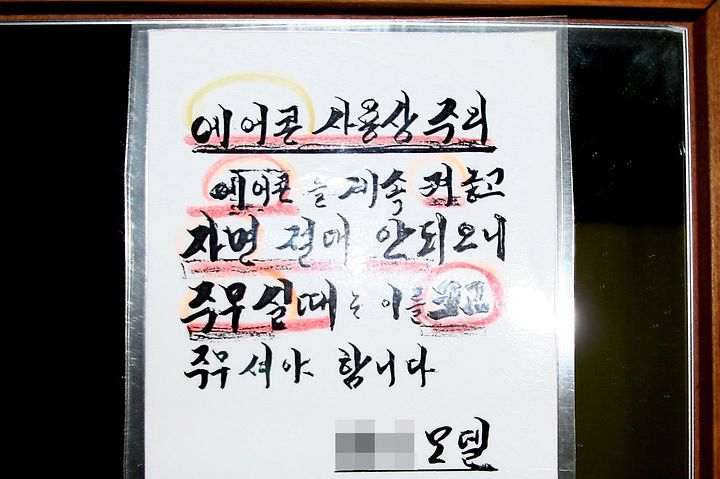 에어콘 사용상 주의
에어콘을 계속 켜놓고
자면 절대 안되오니
주무실때는 이를 끄고
주무셔야 합니다
모텔